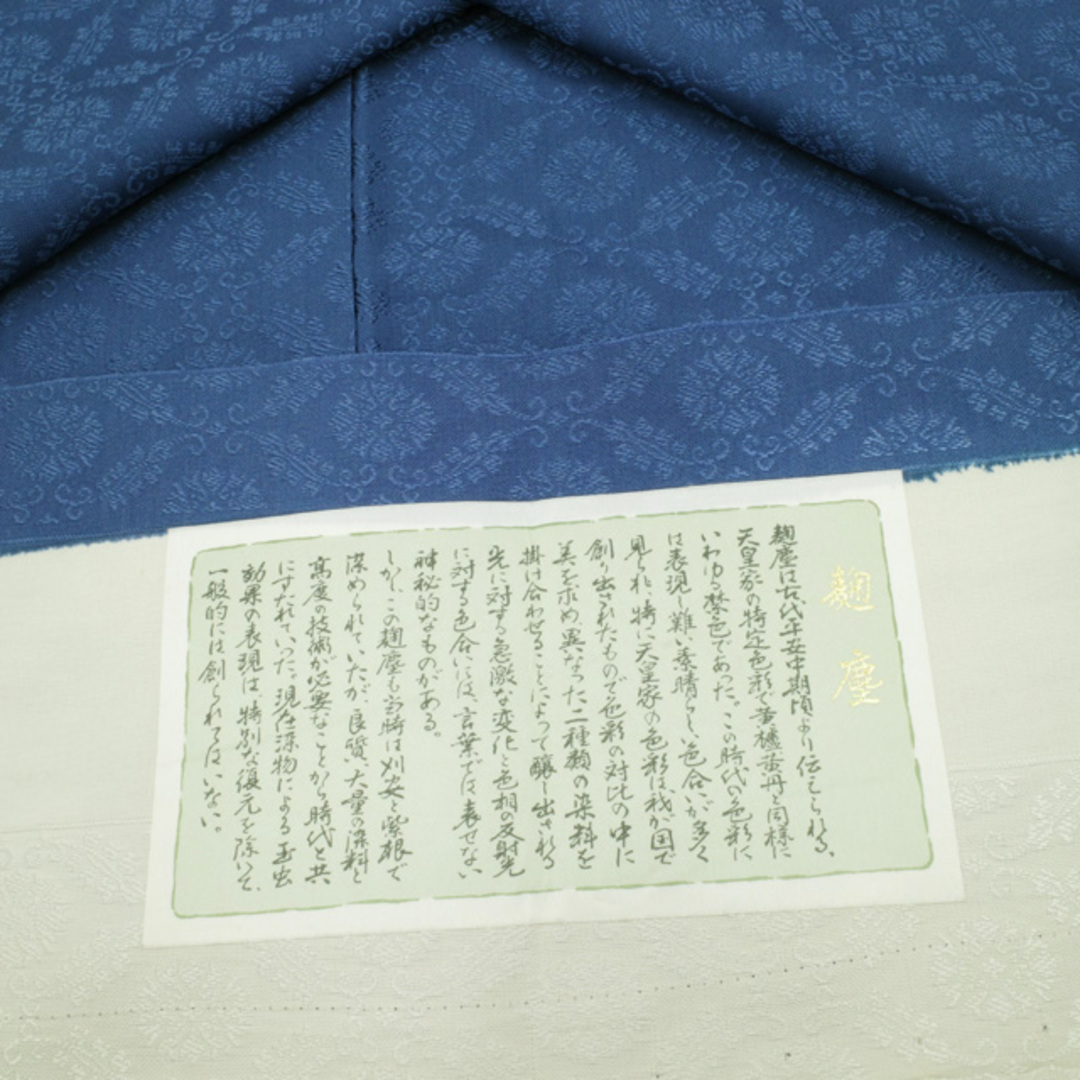 麹塵
麹塵は古代平安中期頃より伝えられる、
天皇家の特定色彩で黄櫨黄丹と同様に
いわゆる禁色であった。この時代の色彩に
は表現し難い素晴らしい色合いが多々
見られ、特に天皇家の色彩は我が国で
創り出されたもので色彩の対比の中に
美を求め、異なった二種類の染料を
掛け合わせることによって醸し出される
光に対する急激な変化と色相の反射光
に対する色合いには、言葉では表せない
神秘的なものがある。
しかしこの麹塵も当時は刈安と紫根で
染められていたが、良質、大量の染料と
高度の技術が必要なことから時代と共
にすたれていった。現在染物による玉虫
効果の表現は、特別な復元を除いて、
一般的には創られてはいない。